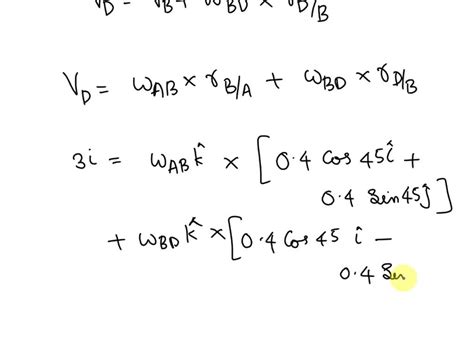 V_D = V_B + ω_BD × r_D/B
V_D = ω_AB × r_B/A + ω_BD × r_D/B
3i = ω_AB k̂ × [0.4 Cos 45 î +
0.4 Sin45 ĵ]
+ ω_BD k̂ × [0.4 Cos 45 î −
0.4 Se